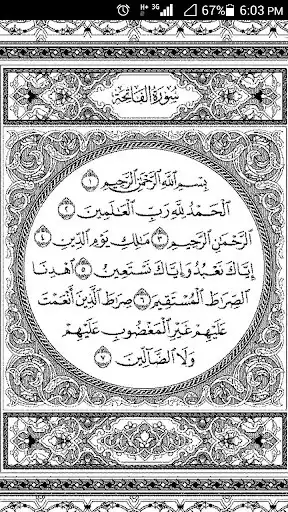 H+ 3G 67% 6:03 PM
سُورَةُ الفَاتِحَةِ
بِسۡمِ ٱللَّهِ ٱلرَّحۡمَٰنِ ٱلرَّحِيمِ ١
ٱلۡحَمۡدُ لِلَّهِ رَبِّ ٱلۡعَٰلَمِينَ ٢
ٱلرَّحۡمَٰنِ ٱلرَّحِيمِ ٣ مَٰلِكِ يَوۡمِ ٱلدِّينِ ٤
إِيَّاكَ نَعۡبُدُ وَإِيَّاكَ نَسۡتَعِينُ ٥ ٱهۡدِنَا
ٱلصِّرَٰطَ ٱلۡمُسۡتَقِيمَ ٦ صِرَٰطَ ٱلَّذِينَ أَنۡعَمۡتَ
عَلَيۡهِمۡ غَيۡرِ ٱلۡمَغۡضُوبِ عَلَيۡهِمۡ
وَلَا ٱلضَّآلِّينَ ٧